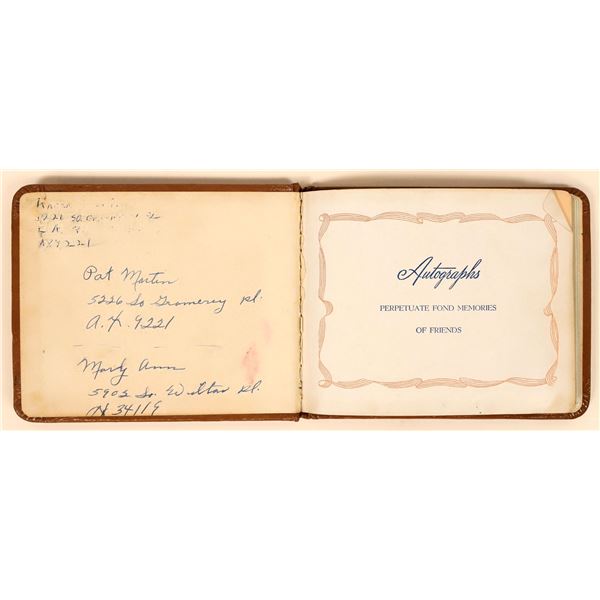 Pat Martin
5226 So Gramercy Pl.
A.X. 9221
Mary Ann
5902 So. Wilton Pl.
34119
Autographs
PERPETUATE FOND MEMORIES
OF FRIENDS